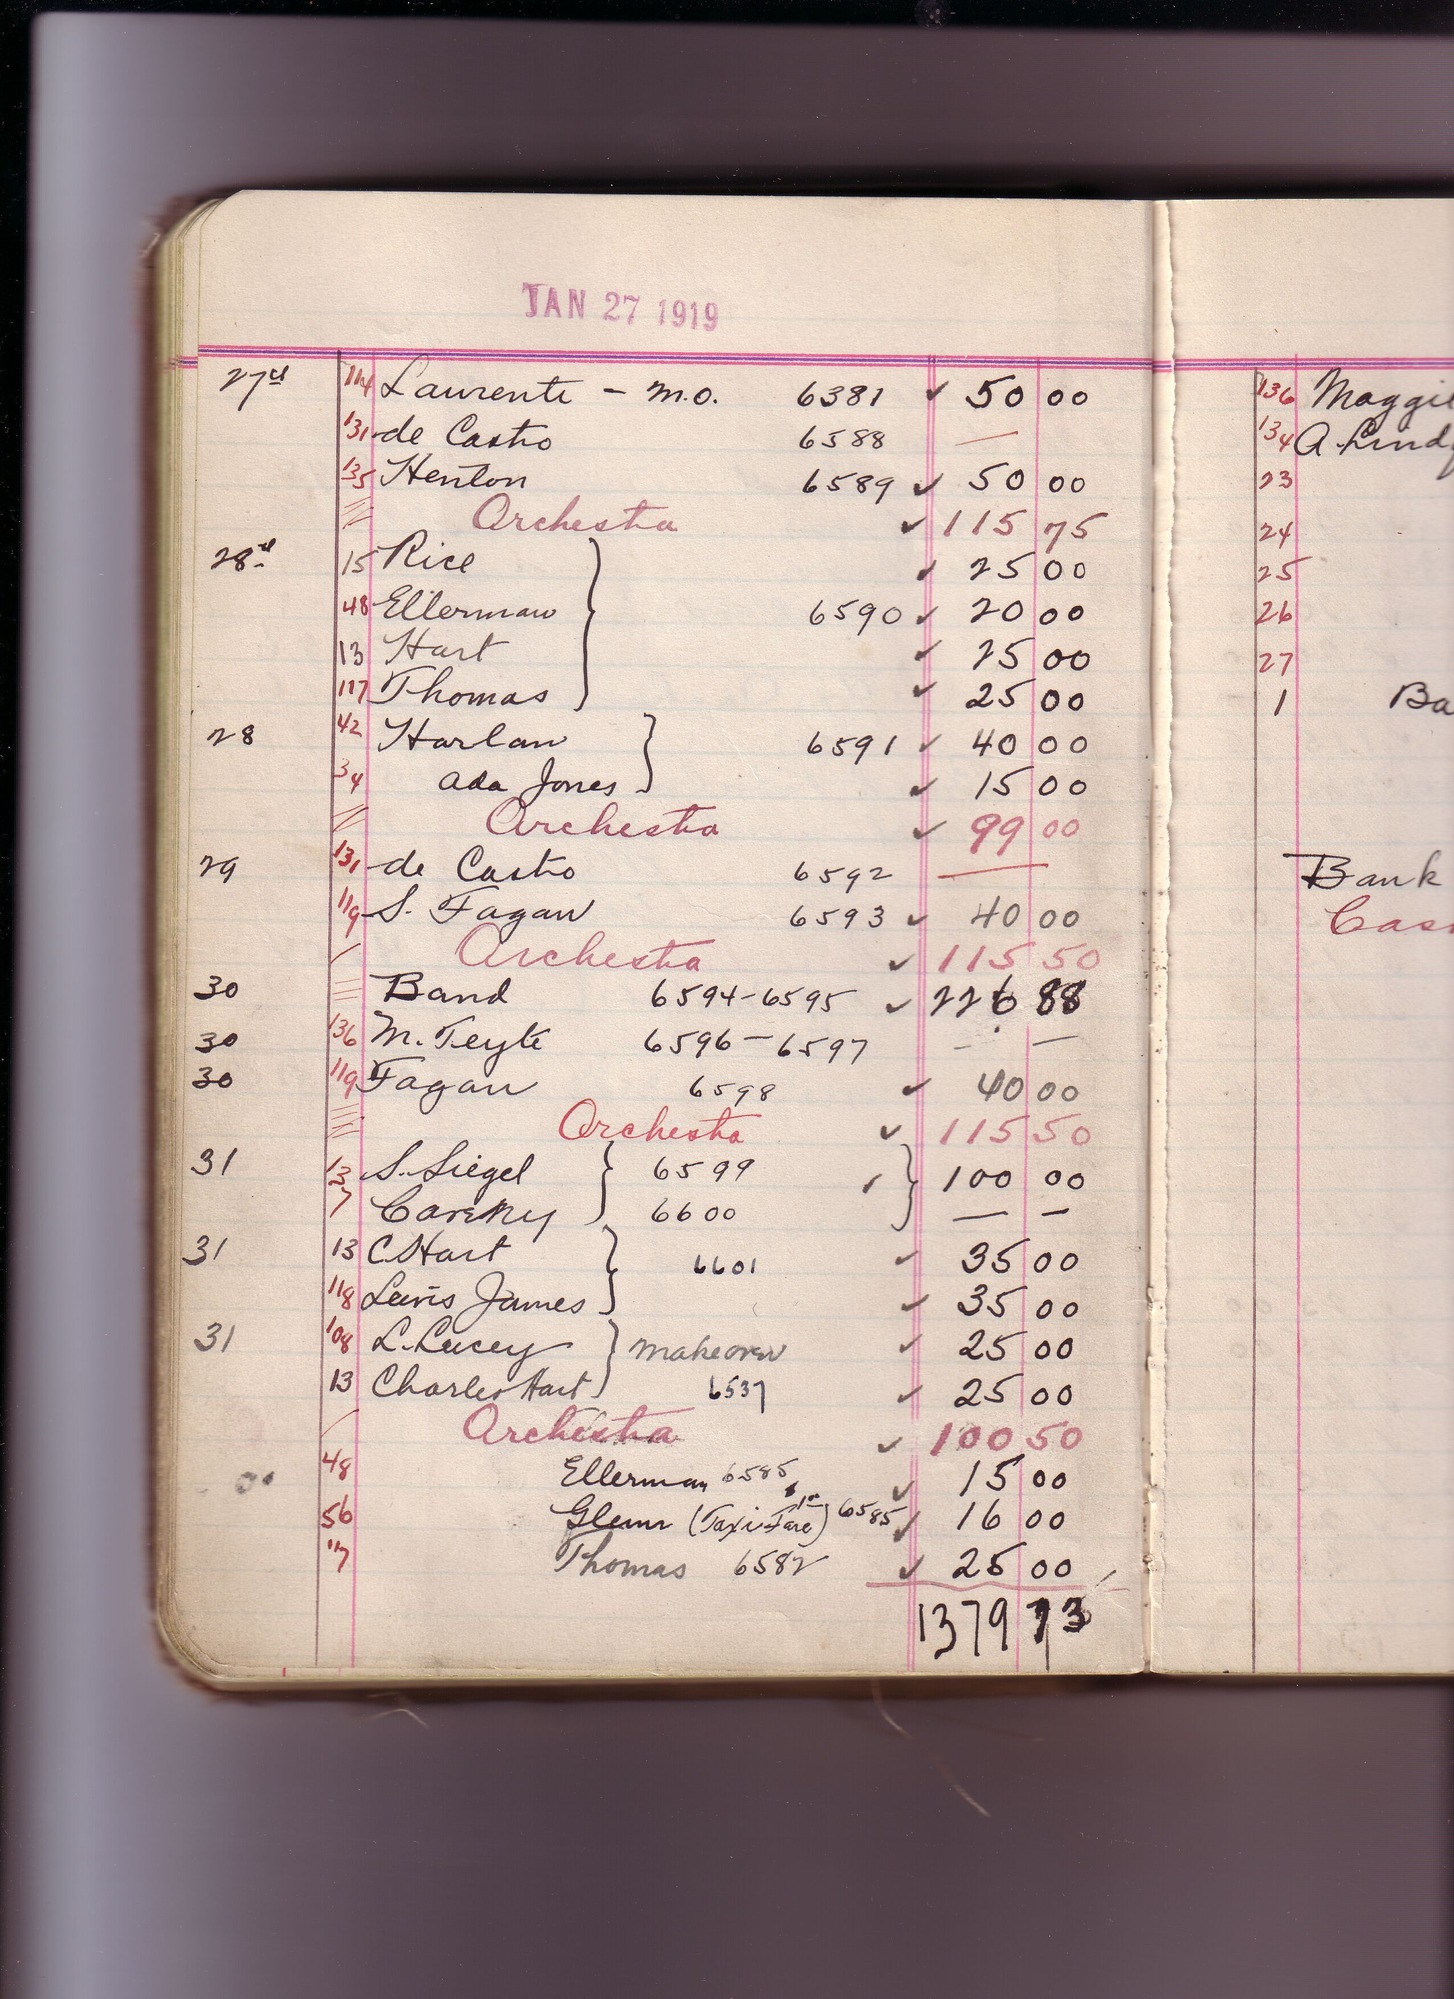 JAN 27 1919
27th 114 Laurenti - m.o. 6381 ✓ 50 00
131 de Castro 6588 —
135 Henton 6589 ✓ 50 00
Orchestra ✓ 115 75
28th 15 Rice ✓ 25 00
48 Ellerman 6590 ✓ 20 00
13 Hart ✓ 25 00
117 Thomas ✓ 25 00
28 42 Harlan 6591 ✓ 40 00
34 Ada Jones ✓ 15 00
Orchestra ✓ 99 00
29 131 de Castro 6592 —
119 S. Fagan 6593 ✓ 40 00
Orchestra ✓ 115 50
30 Band 6594-6595 ✓ 226 88
30 136 M. Teyte 6596-6597 — —
30 119 Fagan 6598 ✓ 40 00
Orchestra ✓ 115 50
31 S. Siegel 6599 ✓ 100 00
7 6600 — —
31 13 C Hart 6601 ✓ 35 00
118 Lewis James ✓ 35 00
31 108 L. Lucey makeover ✓ 25 00
13 Charles Hart 6537 ✓ 25 00
Orchestra ✓ 100 50
48 Ellerman 6585 ✓ 15 00
56 Glenn (Taxi-Fare) 6585 ✓ 16 00
117 Thomas 6582 ✓ 25 00
1379 73
136 Maggie
134 A. Lind
23
24
25
26
27
1 Ba
Bank
Cas